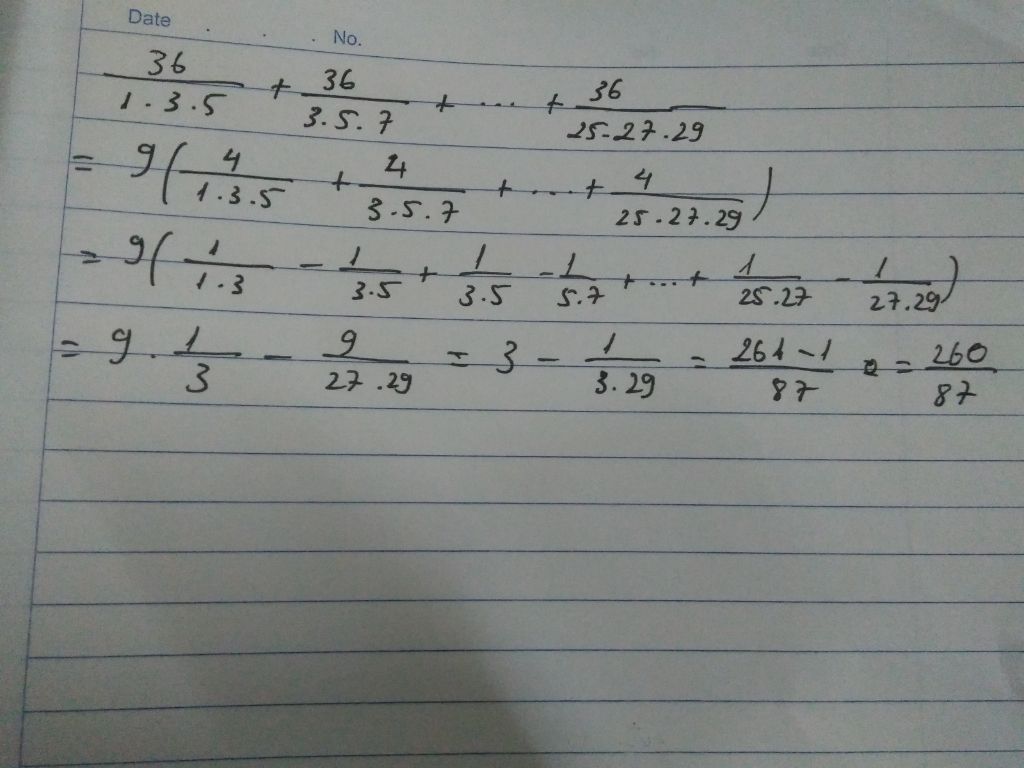 Date . . . No.
36/(1.3.5) + 36/(3.5.7) + ... + 36/(25.27.29)
= 9(4/(1.3.5) + 4/(3.5.7) + ... + 4/(25.27.29))
= 9(1/(1.3) - 1/(3.5) + 1/(3.5) - 1/(5.7) + ... + 1/(25.27) - 1/(27.29))
= 9 . 1/3 - 9/(27.29) = 3 - 1/(3.29) = (261-1)/87 = 260/87